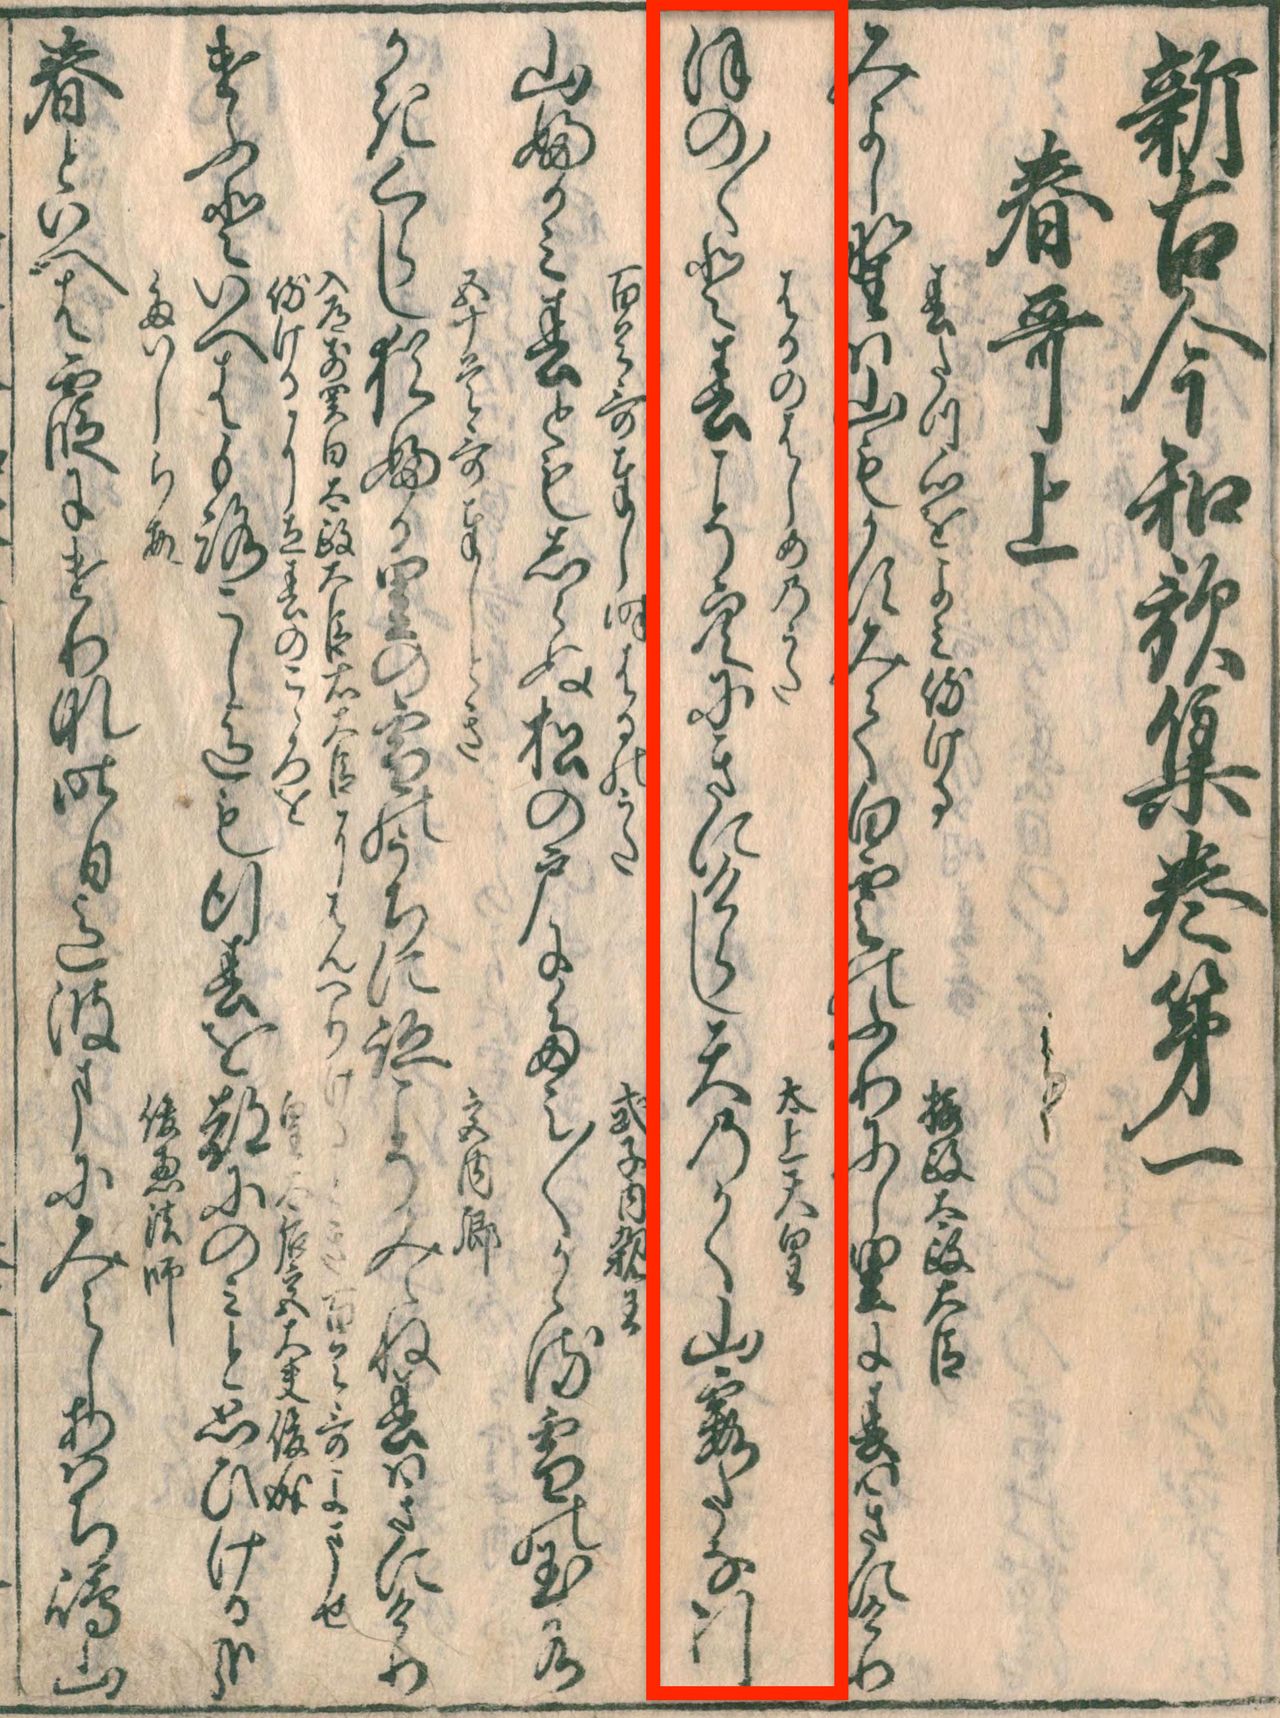 新古今和歌集巻第一
春哥上
春たつ心をよみ侍ける
摂政太政大臣
みよし野は山もかすみて白雪のふりにし里に春はきにけり
はるのはしめのうた
太上天皇
ほの〱と春こそ空にきにけらし天乃かく山霞たな引
百首哥奉し時はるのうた
式子内親王
山ふかみ春ともしらぬ松の戸にたえ〱かゝる雪の玉水
五十首哥奉しとき
宮内卿
かきくらし猶ふる里の雪のうちに跡こそみえね春はきにけり
入道前関白太政大臣右大臣にはへりける時百首哥よませ
侍けるに立春のこゝろを
皇太后宮大夫俊成
けふといへはもろこしまても行春を都にのみと思ひける哉
たいしらす
俊恵法師
春といへは霞にけりな昨日まて波まにみえしあはち嶋山